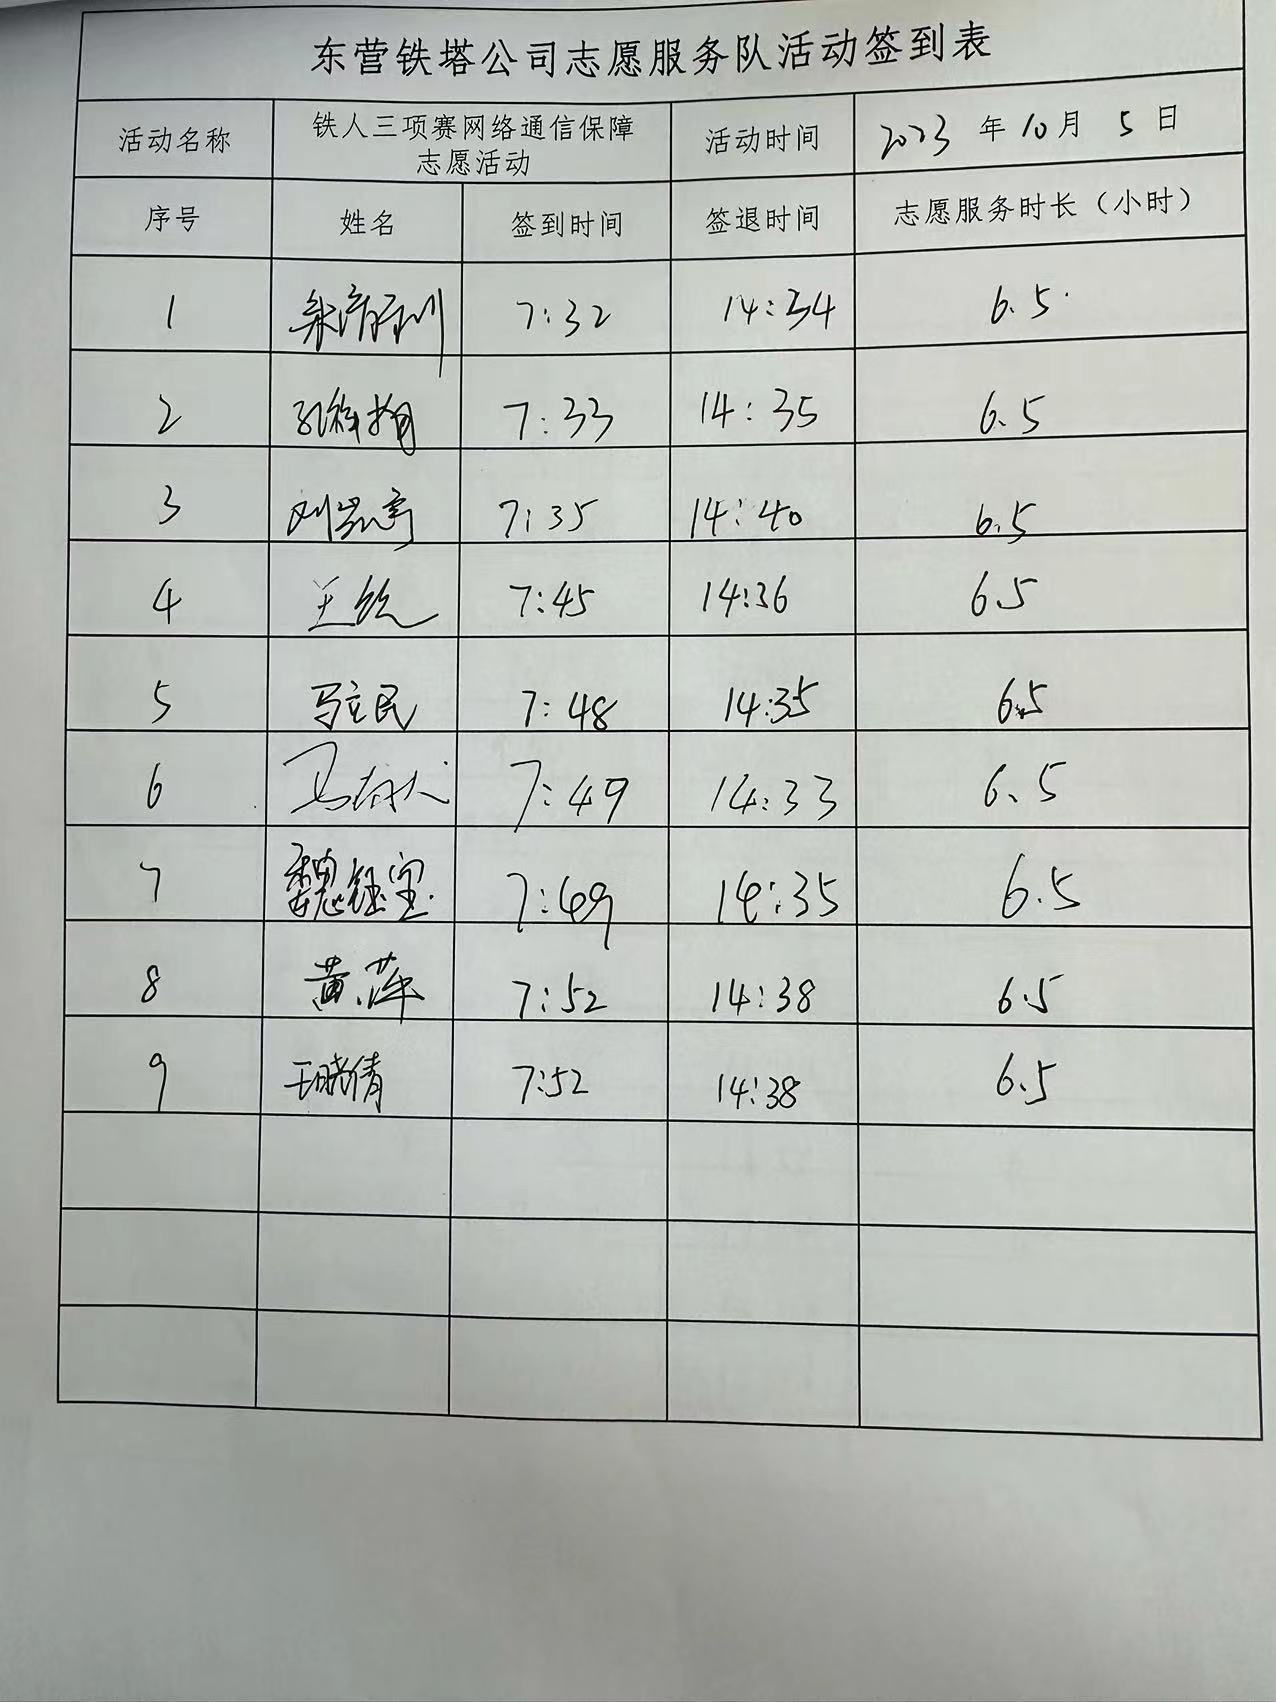 东营铁塔公司志愿服务队活动签到表
活动名称 铁人三项赛网络通信保障 志愿活动 活动时间 2023 年 10 月 5 日
序号 姓名 签到时间 签退时间 志愿服务时长（小时）
1 7:32 14:34 6.5
2 7:33 14:35 6.5
3 7:35 14:40 6.5
4 7:45 14:36 6.5
5 马立民 7:48 14:35 6.5
6 7:49 14:33 6.5
7 魏钰宝 7:49 14:35 6.5
8 黄萍 7:52 14:38 6.5
9 王晓倩 7:52 14:38 6.5